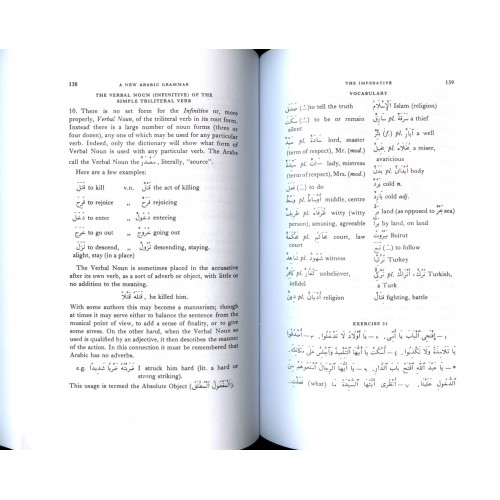 138 A NEW ARABIC GRAMMAR
THE VERBAL NOUN (INFINITIVE) OF THE
SIMPLE TRILITERAL VERB
10. There is no set form for the Infinitive or, more
properly, Verbal Noun, of the triliteral verb in its root form.
Instead there is a large number of noun forms (three or
four dozen), any one of which may be used for any particular
verb. Indeed, only the dictionary will show what form of
Verbal Noun is used with any particular verb. The Arabs
call the Verbal Noun the مَصْدَرٌ, literally, "source".
Here are a few examples:
قَتَلَ to kill v.n. قَتْلٌ the act of killing
فَرِحَ to rejoice „ فَرَحٌ rejoicing
دَخَلَ to enter „ دُخُولٌ entering
خَرَجَ to go out „ خُرُوجٌ going out
نَزَلَ to descend, „ نُزُولٌ descending, staying.
alight, stay (in a place)
The Verbal Noun is sometimes placed in the accusative
after its own verb, as a sort of adverb or object, with little or
no addition to the meaning.
e.g. قَتَلَهُ قَتْلًا he killed him.
With some authors this may become a mannerism; though
at times it may serve either to balance the sentence from the
musical point of view, to add a sense of finality, or to give
some stress. On the other hand, when the Verbal Noun so
used is qualified by an adjective, it then describes the manner
of the action. In this connection it must be remembered that
Arabic has no adverbs.
e.g. ضَرَبْتُهُ ضَرْبًا شَدِيدًا I struck him hard (lit. a hard
or strong striking).
This usage is termed the Absolute Object (اَلْمَفْعُولُ ٱلْمُطْلَقُ).
THE IMPERATIVE 139
VOCABULARY
صَدَقَ (ـُ) to tell the truth
سَكَتَ (ـُ) to be or remain
silent
سَيِّدٌ pl. سَادَةٌ lord, master
(term of respect), Mr. (mod.)
سَيِّدَةٌ pl. سَيِّدَاتٌ lady, mistress
(term of respect), Mrs. (mod.)
فَعَلَ (ـَ) to do
وَسَطٌ pl. أَوْسَاطٌ middle, centre
ظَرِيفٌ pl. ظُرَفَاءُ witty (witty
person), amusing, agreeable
مَحْكَمَةٌ pl. مَحَاكِمُ law court
شَاهِدٌ pl. شُهُودٌ witness
كَافِرٌ pl. كُفَّارٌ unbeliever,
infidel
دِينٌ pl. أَدْيَانٌ religion
اَلْإِسْلَامُ Islam (religion)
سَارِقٌ pl. سَرَقَةٌ a thief
بِئْرٌ (f.) pl. آبَارٌ a well
بَخِيلٌ pl. بُخَلَاءُ a miser,
avaricious
بَدَنٌ pl. أَبْدَانٌ body
بَرْدٌ cold n.
بَارِدٌ cold adj.
بَرٌّ land (as opposed to بَحْرٌ sea)
بَرًّا by land, on land
بَيْرُوتُ Beirut
تَبِعَ (ـَ) to follow
تُرْكِيَا Turkey
تُرْكِيٌّ pl. أَتْرَاكٌ, تُرْكٌ Turkish,
a Turk
قِتَالٌ fighting, battle
EXERCISE 11